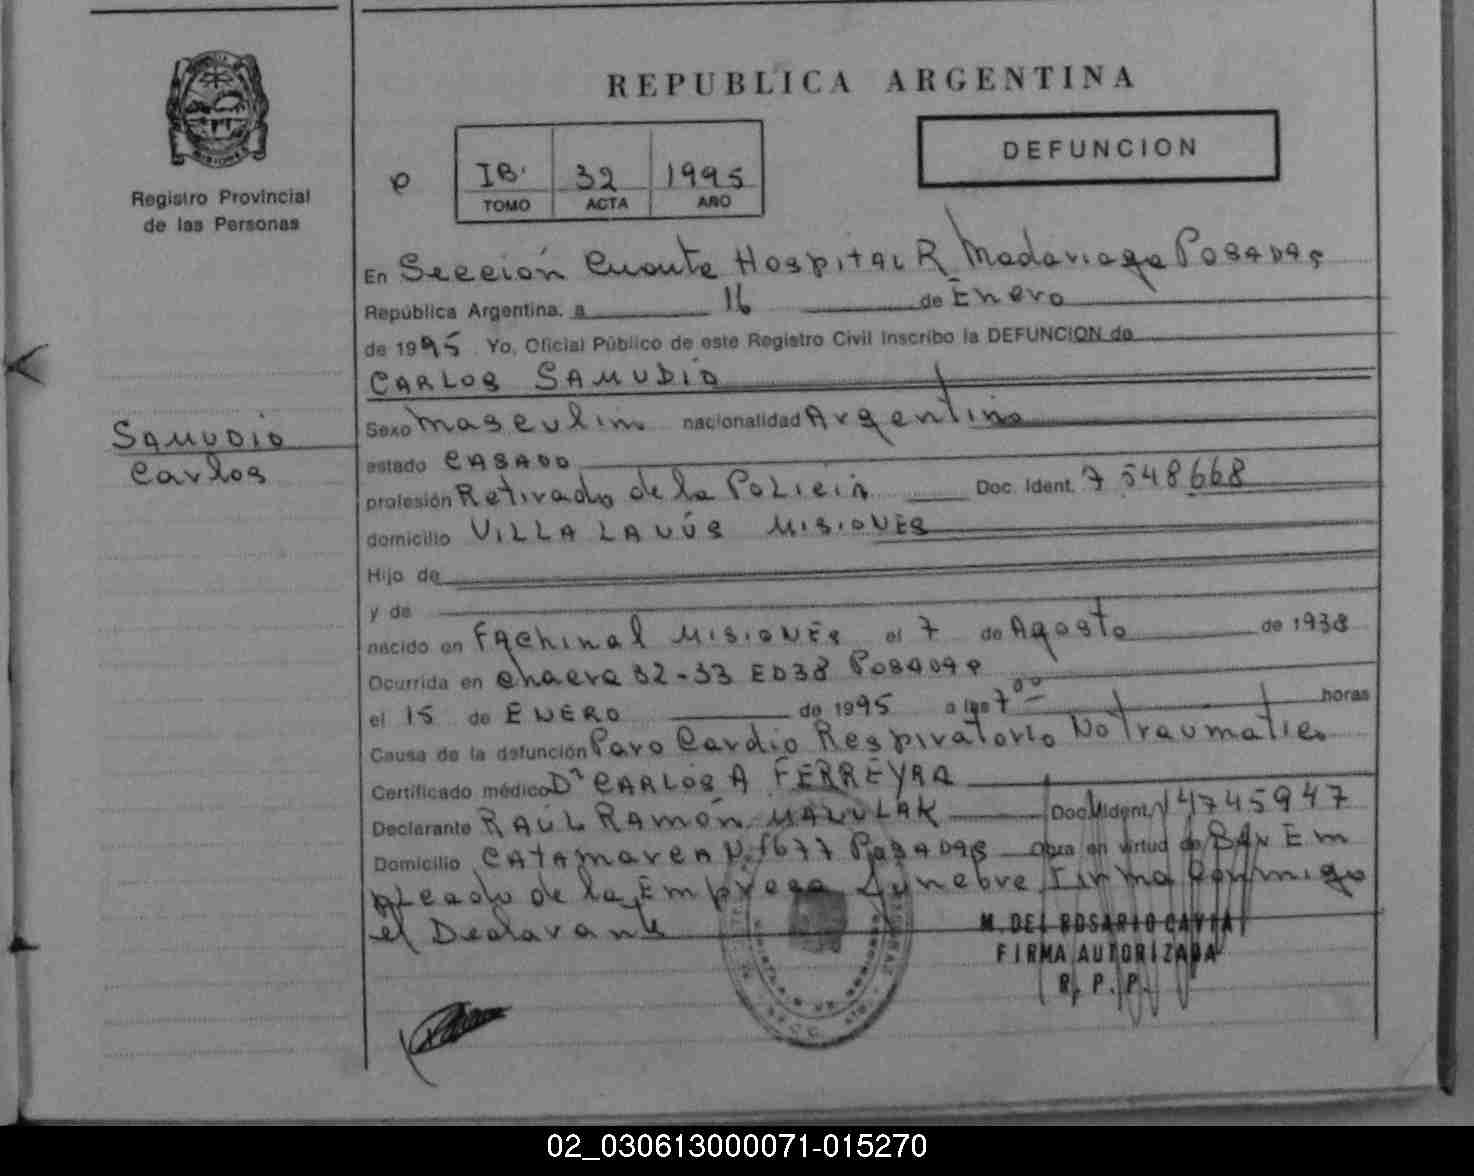 REPUBLICA ARGENTINA
MISIONES
Registro Provincial
de las Personas
IB. 32 1995
TOMO ACTA AÑO
DEFUNCION
En Sección Cuarta Hospital R Madariaga Posadas
República Argentina, a 16 de Enero
de 1995. Yo, Oficial Público de este Registro Civil Inscribo la DEFUNCION de
CARLOS SAMUDIO
SAMUDIO
Carlos
Sexo masculino nacionalidad Argentino
estado CASADO
profesión Retirado de la Policía Doc. Ident. 7548668
domicilio VILLA LANÚS MISIONES
Hijo de
y de
nacido en Fachinal MISIONES el 7 de Agosto de 1938
Ocurrida en chacra 32-33 ED38 POSADAS
el 15 de ENERO de 1995 a las 7 00 horas
Causa de la defunción Paro Cardio Respiratorio No Traumatico
Certificado médico Dr CARLOS A FERREYRA
Declarante RAÚL RAMÓN Doc. Ident. 14745947
Domicilio CATAMARCA N° 1677 POSADAS Obra en virtud de Em
pleado de la Empresa Funebre Firma Conmigo
el Declarante
M. DEL ROSARIO CAVIA
FIRMA AUTORIZADA
R. P. P.
02_030613000071-015270